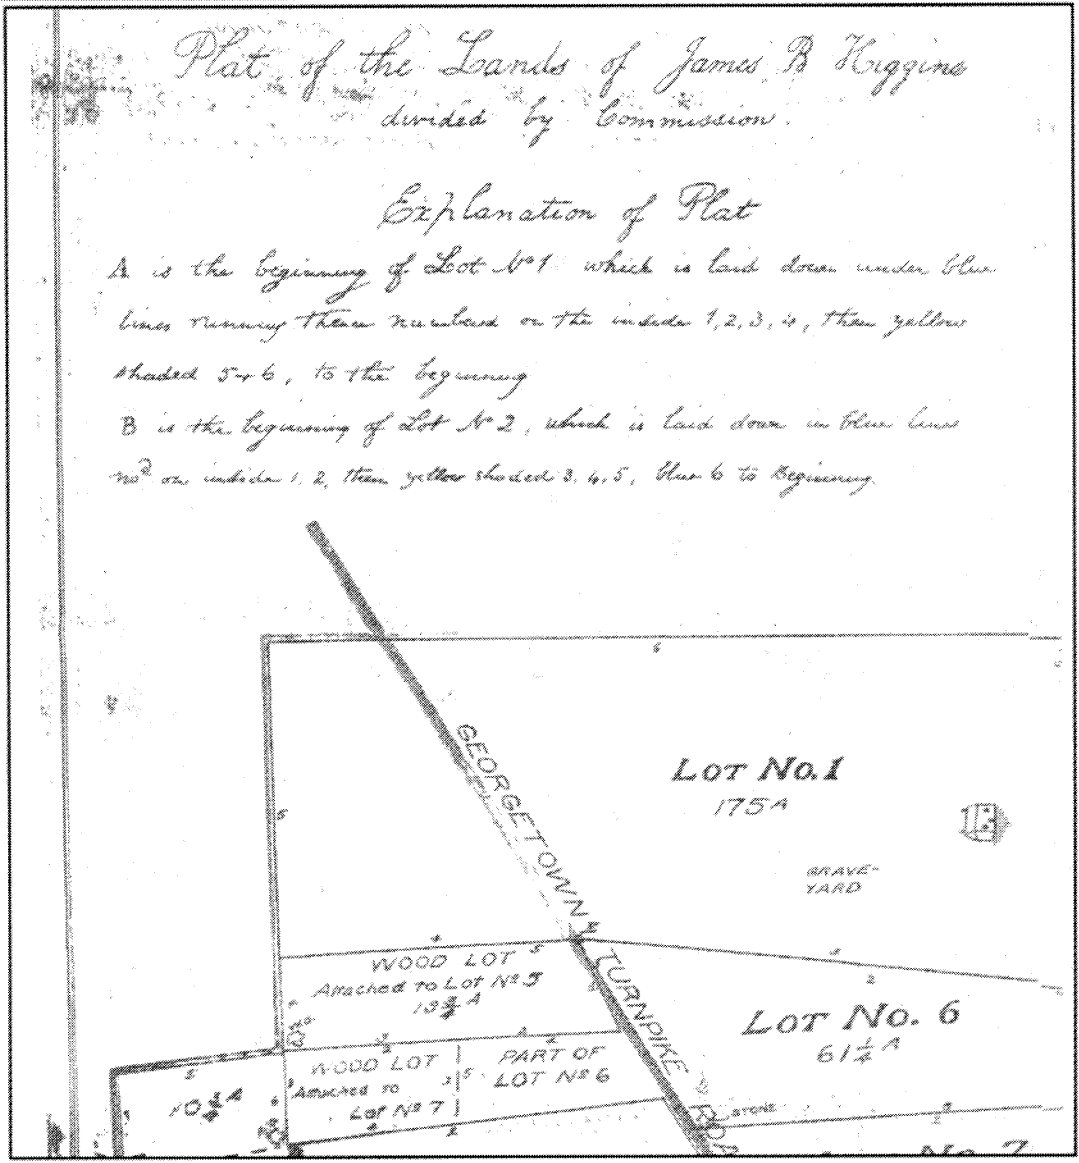 Plat of the Lands of James B Higgins
divided by Commission.
Explanation of Plat
A is the beginning of Lot No 1 which is laid down under blue
lines running thence numbered on the inside 1, 2, 3, 4, then yellow
shaded 5 + 6, to the beginning
B is the beginning of Lot No 2, which is laid down in blue lines
nod on inside 1, 2, then yellow shaded 3, 4, 5, blue 6 to Beginning
6
GEORGETOWN TURNPIKE ROA
LOT No. 1
175 A
5
GRAVE-
YARD
4
5
WOOD LOT
Attached to Lot No 5
3
2
LOT No. 6
61 1/4 A
WOOD LOT
Attached to
Lot No 7
PART OF
LOT No 6
STONE
No. 7